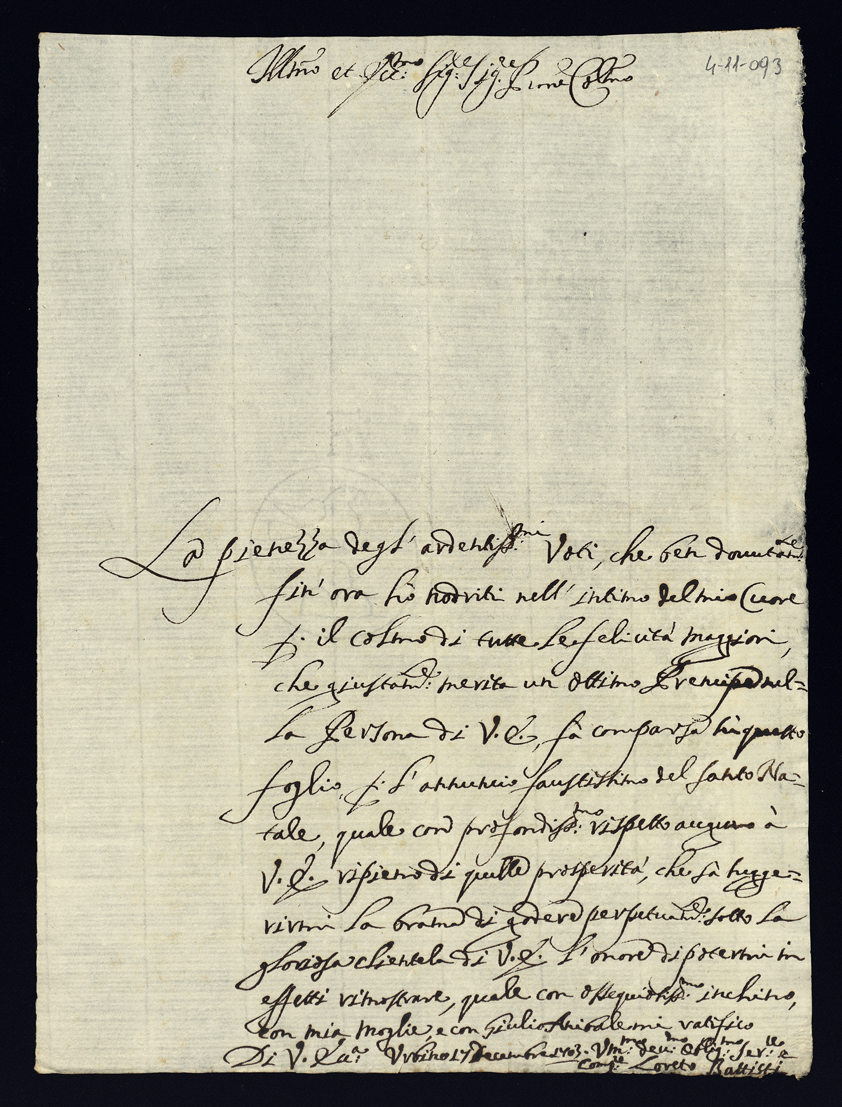 Illmo et Ecc:mo Sig:re Sig:re Prone Collmo
4-11-093
La pienezza degl' ardentiss:mi Voti, che ben dovutam:te
sin' ora hò nodriti nell' intimo del mio Cuore
p. il colmo di tutte le felicità maggiori,
che giustam:te merita un ottimo Prencipe nel=
la Persona di V. E., fà comparsa in questo
foglio p. l' annuncio faustissimo del Santo Na=
tale, quale con profondiss:mo rispetto auguro à
V. E. ripieno di quelle prosperità, che sà sugge=
rirmi la brama di godere perpetuam:te sotto la
gloriosa clientela di V. E. l' onore di potermi in
effetti rimostrare, quale con ossequiosiss:mo inchino,
con mia Moglie, e con Giulio Anibale mi ratifico
Di V. Ecc:a Urbino 17 Decembre 1703. Um:mo dev:mo Obblig:mo Ser:re e
Comp:re Loreto Battisti